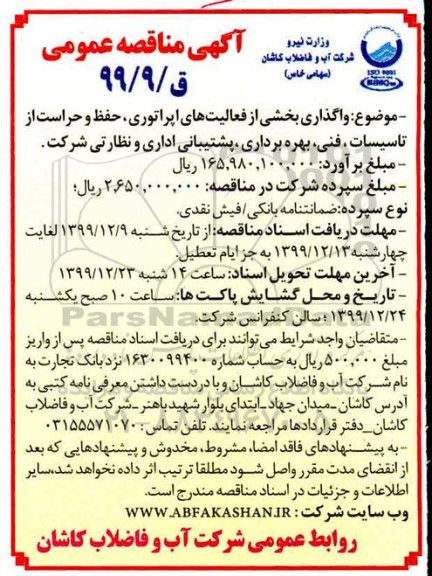 آگهی مناقصه عمومی
ق/۹/۹۹
وزارت نیرو
شرکت آب و فاضلاب کاشان
(سهامی خاص)
ISO 9001
-موضوع:واگذاری بخشی از فعالیت‌های اپراتوری، حفظ و حراست از
تاسیسات ، فنی، بهره برداری، پشتیبانی اداری و نظارتی شرکت .
-مبلغ برآورد: ۱۶۵,۹۸۰,۱۰۰,۰۰۰ ریال
-مبلغ سپرده شرکت در مناقصه: ۲,۶۵۰,۰۰۰,۰۰۰ ریال؛
نوع سپرده:ضمانتنامه بانکی/فیش نقدی.
-مهلت دریافت اسناد مناقصه:از تاریخ شنبه ۱۳۹۹/۱۲/۹ لغایت
چهارشنبه ۱۳۹۹/۱۲/۱۳ به جز ایام تعطیل.
- آخرین مهلت تحویل اسناد: ساعت ۱۴ شنبه ۱۳۹۹/۱۲/۲۳
- تاریخ و محل گشایش پاکت ها: ساعت ۱۰ صبح یکشنبه
۱۳۹۹/۱۲/۲۴؛ سالن کنفرانس شرکت.
-متقاضیان واجد شرایط می‌توانند برای دریافت اسناد مناقصه پس از واریز
مبلغ ۵۰۰,۰۰۰ ریال به حساب شماره ۱۶۳۰۰۹۹۴۰۰ نزد بانک تجارت به
نام شرکت آب و فاضلاب کاشان و با در دست داشتن معرفی نامه کتبی به
آدرس کاشان _میدان جهاد_ابتدای بلوار شهید باهنر_شرکت آب و فاضلاب
کاشان_دفتر قراردادها مراجعه نمایند. تلفن تماس: ۰۳۱۵۵۵۷۱۰۷۰
-به پیشنهادهای فاقد امضا، مشروط، مخدوش و پیشنهادهایی که بعد
از انقضای مدت مقرر واصل شود مطلقا ترتیب اثر داده نخواهد شد،سایر
اطلاعات و جزئیات در اسناد مناقصه مندرج است.
وب سایت شرکت : WWW.ABFAKASHAN.IR
روابط عمومی شرکت آب و فاضلاب کاشان